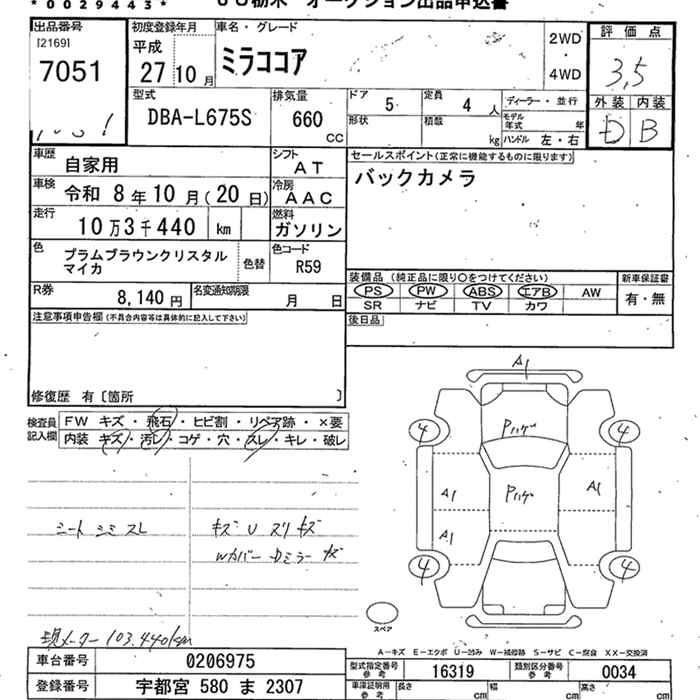 *0029443*
UU栃木 オークション出品申込書
出品番号
[2169]
7051
初度登録年月
平成
27 10 月
車名・グレード
ミラココア
2WD
・
4WD
評価点
3,5
外装 内装
D B
型式
DBA-L675S
排気量
660
CC
ドア 5
定員 4 人
形状
積載 kg
ディーラー・並行
モデル年式 年
ハンドル 左・右
車歴
自家用
シフト
AT
車検
令和 8年10月(20日)
冷房
AAC
走行
10万3千440 km
燃料
ガソリン
色
プラムブラウンクリスタル
マイカ
色替
色コード
R59
R券
8,140 円
名変通知期限
月 日
セールスポイント(正常に機能するものに限ります)
バックカメラ
装備品(純正品に限り○をつけてください)
新車保証書
PS PW ABS エアB AW
SR ナビ TV カワ
有・無
後日品
注意事項申告欄(不具合内容等は具体的に記入して下さい)
修復歴 有〔箇所 〕
検査員
記入欄
FW キズ・飛石・ヒビ割・リペア跡・×要
内装 キズ・汚レ・コゲ・穴・スレ・キレ・破レ
シート シミ スレ
キズ U スリキズ
Wカバー Dミラー キズ
現メーター 103.440km
A1
4
4
Pハゲ
A1
Pハゲ
A1
A1
4
4
スペア
A-キズ E-エクボ U-凹み W-補修跡 S-サビ C-腐食 XX-交換済
車台番号
0206975
型式指定番号
参考
16319
類別区分番号
参考
0034
登録番号
宇都宮 580 ま 2307
車庫証明用
参考
長さ cm
幅 cm
高さ cm